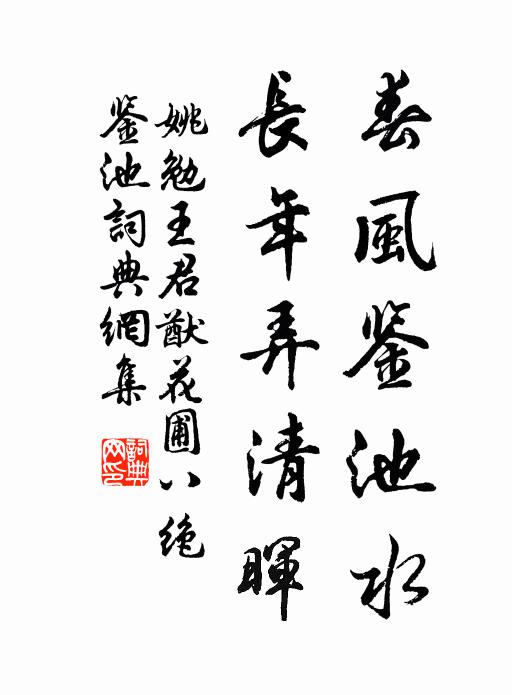 春風鑒池水
長年弄清暉
姚勉王君猷花圃八絶
鑒池詞典網集
詞典網印